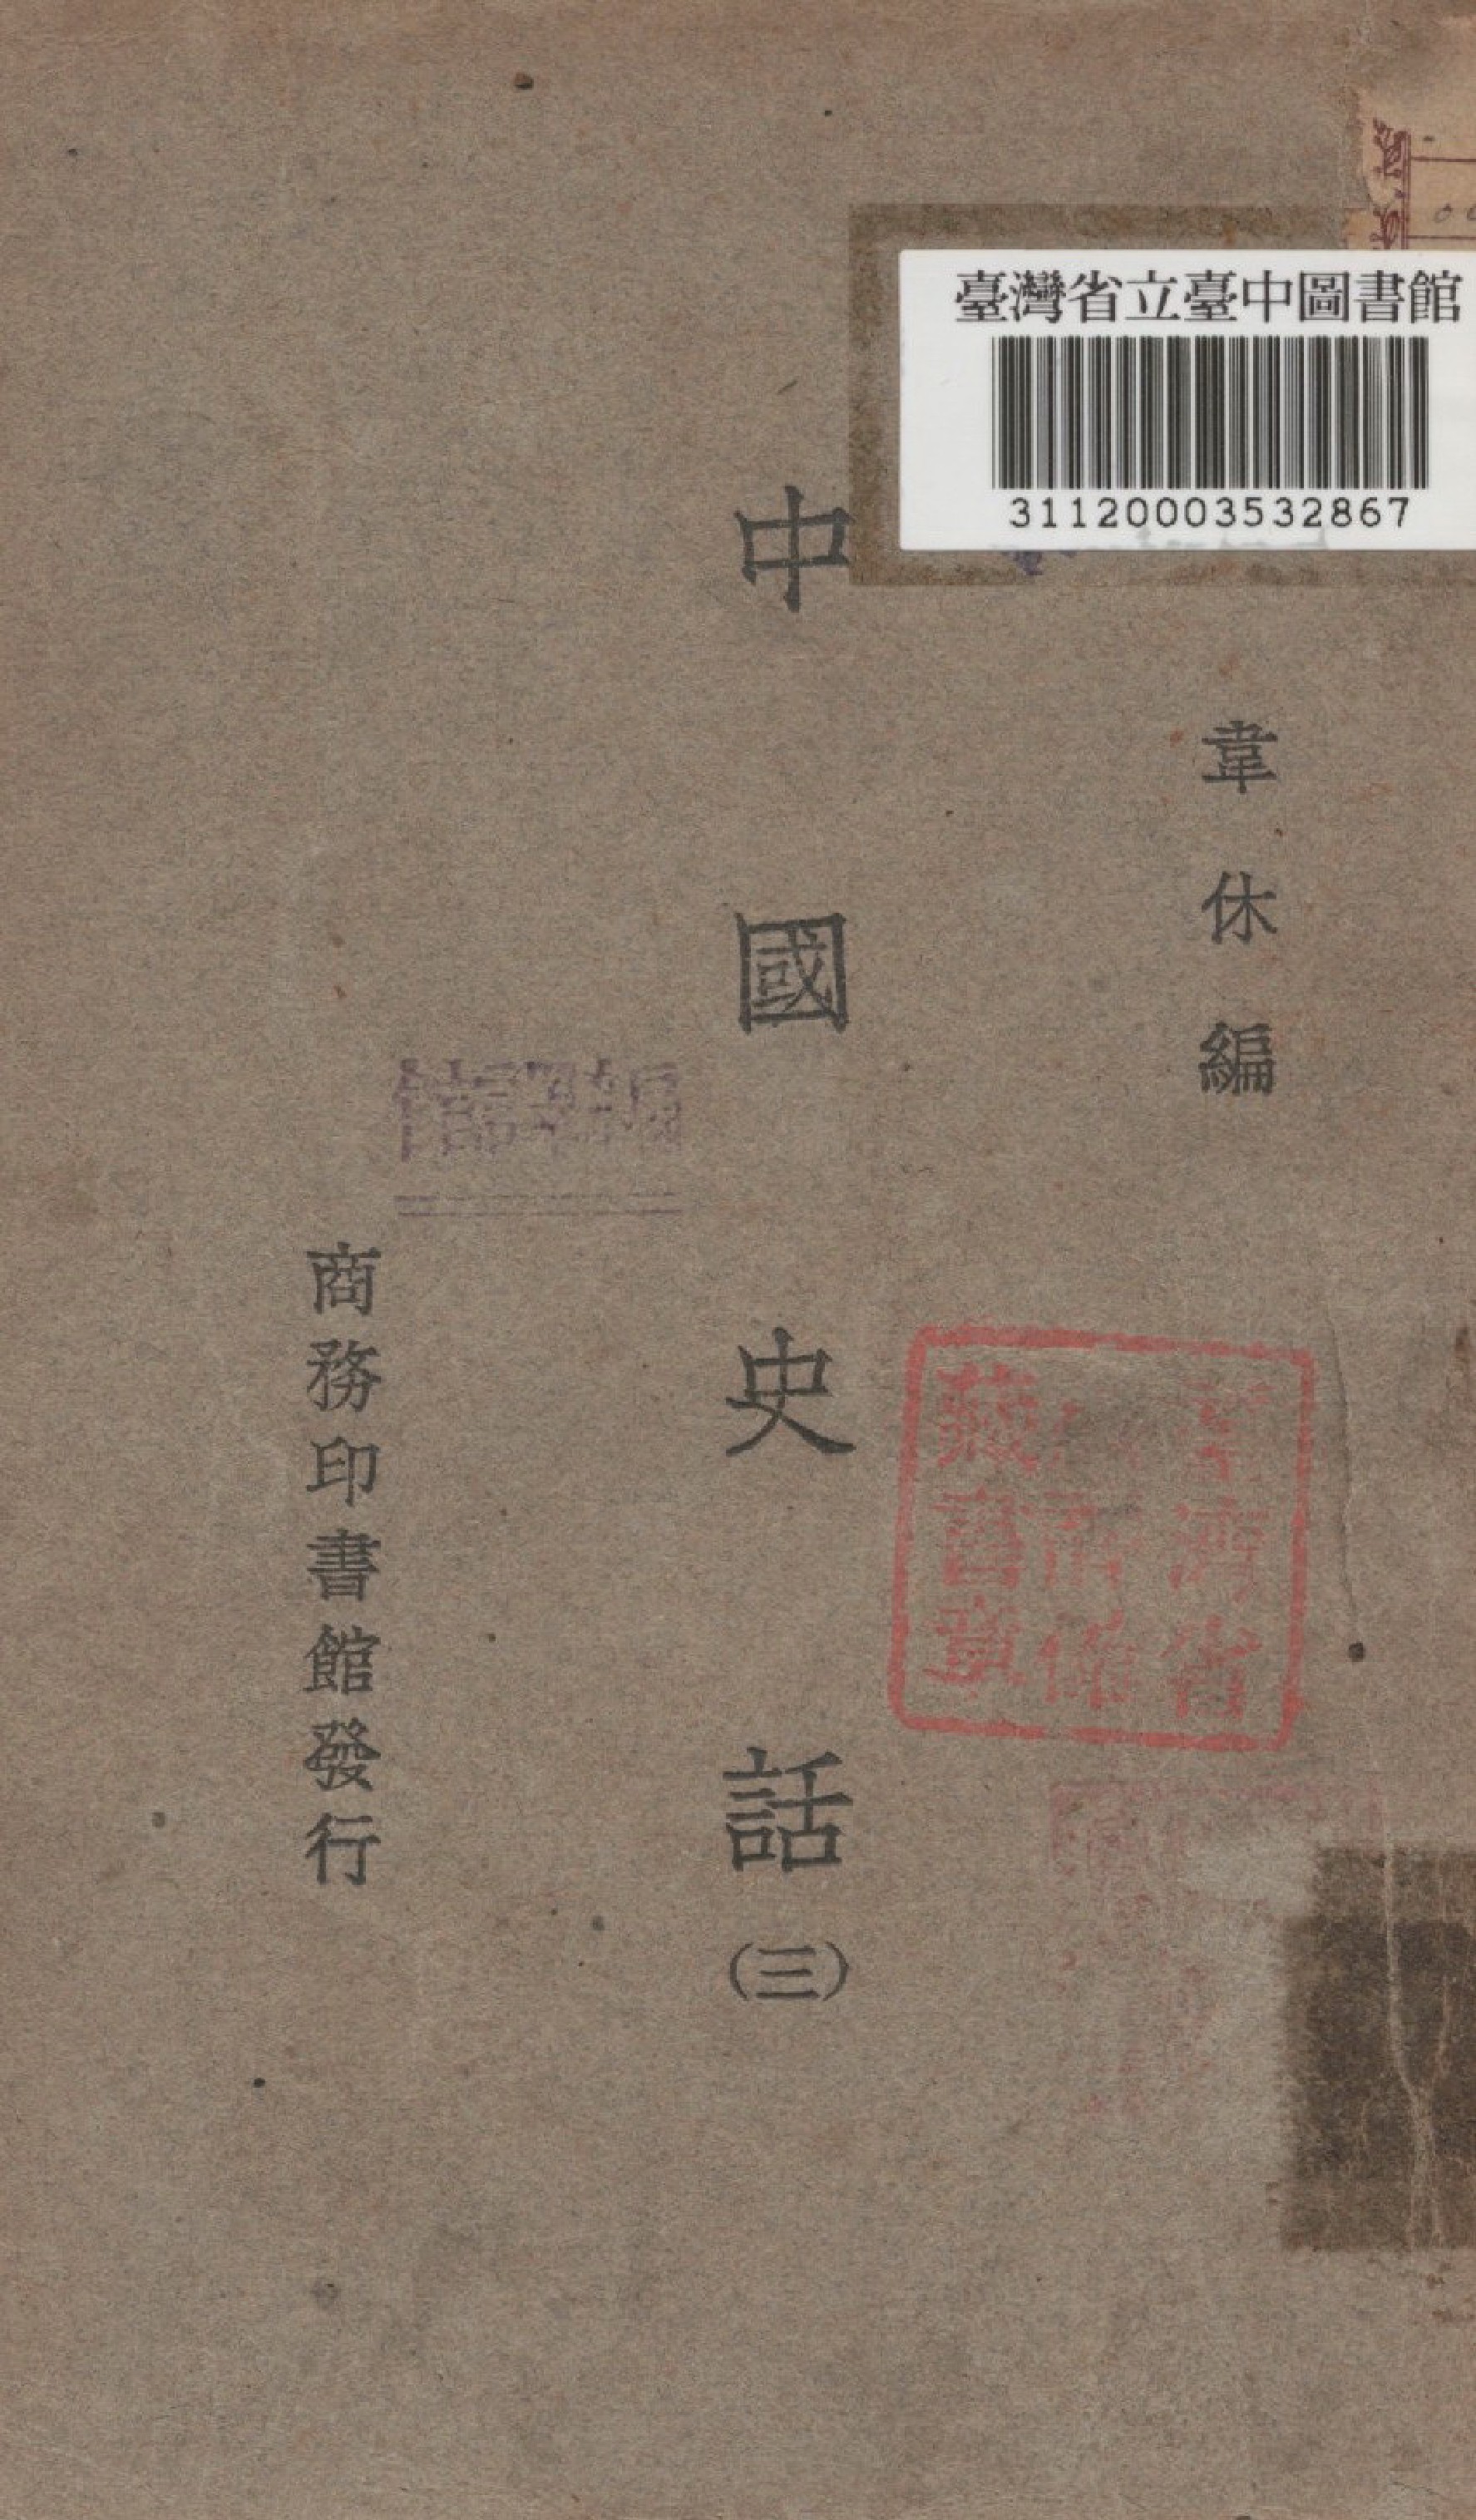 臺灣省立臺中圖書館
31120003532867
韋休編
中國史話(三)
商務印書館發行
編譯館
藏書章